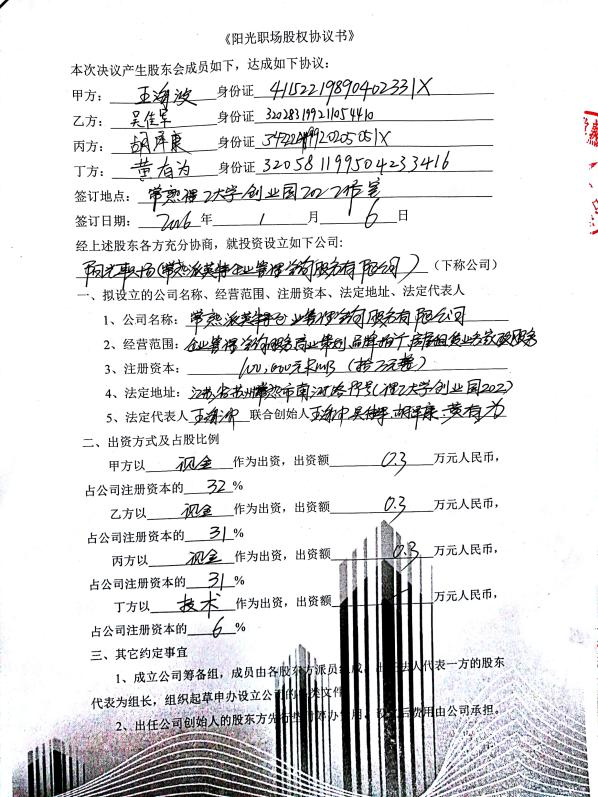 《阳光职场股权协议书》
本次决议产生股东会成员如下，达成如下协议：
甲方： 王海波 身份证
乙方： 吴佳军 身份证 320283199211054410
丙方： 胡泽康 身份证
丁方： 黄有为 身份证 320581199504233416
签订地点： 常熟理工大学创业园202工作室
签订日期： 2016 年 1 月 6 日
经上述股东各方充分协商，就投资设立如下公司:
阳光职场(常熟派英特企业管理咨询服务有限公司) （下称公司）
一、拟设立的公司名称、经营范围、注册资本、法定地址、法定代表人
1、公司名称: 常熟派英特企业管理咨询服务有限公司
2、经营范围: 企业管理咨询服务 商业策划 品牌推广
3、注册资本: 100,000元RMB (拾万元整)
4、法定地址: 江苏省苏州常熟市南三环路99号(理工大学创业园202)
5、法定代表人 联合创始人 吴佳军 胡泽康 黄有为
二、出资方式及占股比例
甲方以 现金 作为出资，出资额 0.3 万元人民币，
占公司注册资本的 32 %
乙方以 现金 作为出资，出资额 0.3 万元人民币，
占公司注册资本的 31 %
丙方以 现金 作为出资，出资额 0.3 万元人民币，
占公司注册资本的 31 %
丁方以 技术 作为出资，出资额 — 万元人民币，
占公司注册资本的 6 %
三、其它约定事宜
1、成立公司筹备组，成员由各股东方派员组成，出任法人代表一方的股东
代表为组长，组织起草申办设立公司的各类文件
2、出任公司创始人的股东方先行垫付筹办费用，设立后费用由公司承担。